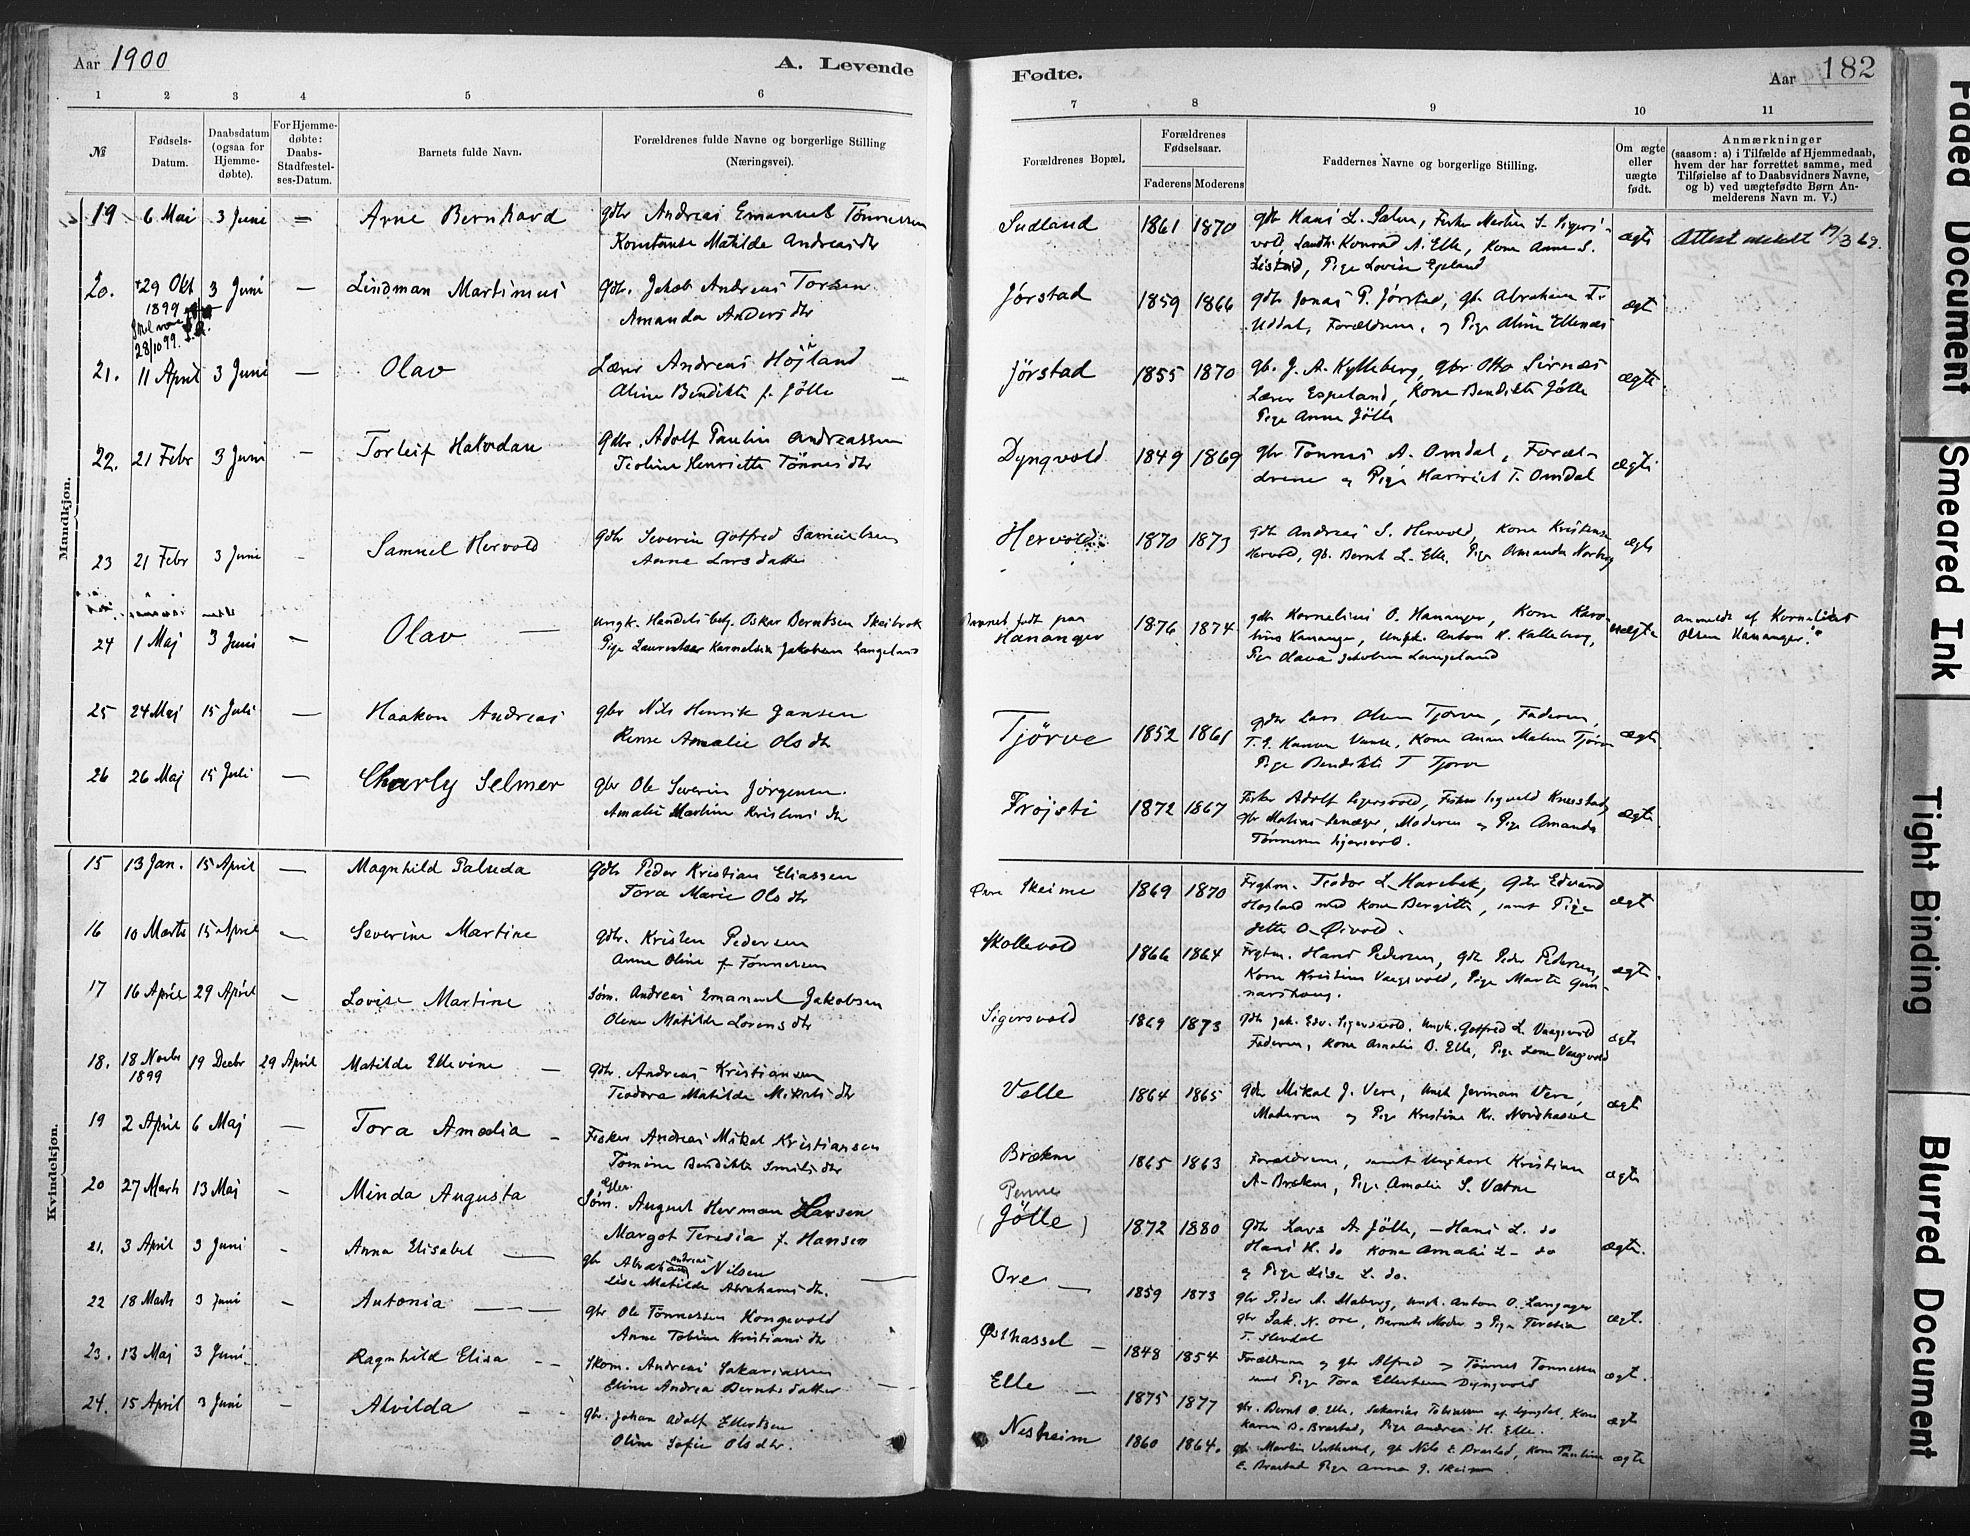 Aar 1900
A. Levende
Fødte.
Aar 182
1 2 3 4 5 6 7 8 9 10 11
№
Fødsels-
Datum.
Daabsdatum
(ogsaa for
Hjemme-
døbte).
For Hjemme-
døbte:
Daabs-
Stadfæstel-
ses-Datum.
Barnets fulde Navn.
Forældrenes fulde Navne og borgerlige Stilling
(Næringsvei).
Forældrenes Bopæl.
Forældrenes
Fødselsaar.
Faderens Moderens
Faddernes Navne og borgerlige Stilling.
Om ægte
eller
uægte
født.
Anmærkninger
(saasom: a) i Tilfælde af Hjemmedaab,
hvem der har forrettet samme, med
Tilføielse af to Daabsvidners Navne,
og b) ved uægtefødte Børn An-
melderens Navn m. V.)
Mandkjøn.
19 6 Mai 3 Juni — Arne Bernhard gbr Andreas Emanuel Tønnessen
Konstanse Matilde Andreasdtr
Sudland 1861 1870 gbr Hans L. Salen, Fisker
Konrad A. Elle, Kone Anne S.
Pige Lovise
ægte
Attest 17/3 69.
20. 29 Okt 3 Juni — Lindman Martinius gbr. Jakob Andreas Torsen
1899
28/10 99.
Amanda Andersdtr
Jørstad 1859 1866 gbr Jonas P. Jørstad, gbr. Abraham
Uddal, Forældrene, og Pige Aline Ellenæs
ægte
21. 11 April 3 Juni — Olav Lærer Andreas Højland
Aline Bendikte f. Jølle
Jørstad 1855 1870 gb. J. A. Kylleberg, gbr Otto Sirnæs
Lærer Espeland, Kone Bendikte Jølle
Pige Anne Jølle
ægte
22. 21 Febr 3 Juni — Torleif Halvdan gbr. Adolf Paulin Andreassen
Teoline Henriette Tønnesdtr
Dyngvold 1849 1869 gbr Tønnes A. Omdal, Foræl-
drene og Pige Harriet T. Omdal
ægte
23 21 Febr 3 Juni - Samuel Hervold gbr Severin Gotfred Samuelsen
Anne Larsdatter
Hervold 1870 1873 gbr Andreas S. Hervold, Kone
Hervold, gb. Bernt L. Elle, Pige Amanda
ægte
24 1 Maj 3 Juni — Olav — ungk. Handelsbetj. Oskar Berntsen Skeibrok
Pige Laurentse Kornelia Jakobsen Langeland
Barnet født paa
Hananger 1876 1874 gbr Kornelius O. Hananger, Kone
Hananger, ungk. Anton H. Kalleberg,
Pige Olava Jakobsen Langeland
uægte
anmeldt af Kornelius
Olsen Hananger
25 24 Maj 15 Juli — Haakon Andreas gbr Nils Henrik Jansen
Amalie Olsdtr
Tjørve 1852 1861 gbr Lars Olsen Tjørve, Faderen,
Kone Anne Malene Tjørve
Pige Bendikte T Tjørve
ægte
26 26 Maj 15 Juli — Charly Selmer gbr Ole Severin Jørgensen.
Amalie Martine Kristensdtr
Frøjsti 1872 1867 Fisker Adolf Sigersvold, Fisker Sigvald
gbr Matias, Moderen og Pige Amanda
Tønnesen Sigersvold.
ægte
Kvindekjøn.
15 13 Jan. 15 April — Magnhild Palude gbr Peder Kristian Eliassen
Tora Marie Olsdtr
Øvre Skeime 1869 1870 Teodor L. Havebæk, gbr Edvard
Hogland med Kone Bergitte, samt Pige
Jette O. Øivold.
ægte
16 10 Marts 15 April — Severine Martine gbr. Kristen Pedersen
Anne Oline f. Tønnesen
Skollevold 1866 1864 Hans Pedersen, gbr Peder Pedersen,
Kone Kristine Vaagsvold, Pige Marte Gun-
narshaug.
ægte
17 16 April 29 April — Lovise Martine Søm. Andreas Emanuel Jakobsen
Olene Matilde Lorensdtr
Sigersvold 1869 1873 gbr Jak. Edv. Sigersvold, Ungk. Gotfred L. Vaagsvold
Faderen, Kone Amalie B. Elle, Pige Lene Vaagsvold
ægte
18. 18 Novbr 19 Decbr 29 April Matilde Ellevine — gbr. Andreas Kristiansen
1899
Teodora Matilde Mikalsdtr
Velle 1864 1865 gbr Mikal J. Vere, Ungk Jerman Vere,
Moderen og Pige Kristine Kr. Nordhassel
ægte
19 2 April 6 Maj — Tora Amalia — Fisker Andreas Mikal Kristiansen
Tomine Bendikte Smitsdtr
Brækne 1865 1863 Forældrene, samt Ungkarl Kristian
A. Brækne, Pige Amalie S. Vatne
ægte
20 27 Marts 13 Maj - Minda Augusta Søm. August Herman Hansen
Margot Teresia f. Hansen
Penne
(Jølle) 1872 1880 gbr Lars A. Jølle, — Hans L. do
Hans H. do Kone Amalie L. do
og Pige Lise L. do.
ægte.
21. 3 April 3 Juni - Anna Elisabet — gbr Andreas Nilsen
Lise Matilde Abrahamsdtr.
Ore — 1859 1873 gbr Peder A. Maberg, Ungk. Anton O. Langager
gbr Sak. N. Ore, Barnets Moder og Pige Teresia
T.
ægt.
22 18 Marts 3 Juni - Antonia — gbr Ole Tønnessen Kongevold
Anne Tobine Kristiansdtr
Østhassel — 1848 1854 Forældrene og gbr Alfred og Tønnes Tønnessen
samt Pige Tora Dyngvold
ægt.
23. 13 Maj 3 Juni - Ragnhild Elisa — Skom. Andreas Sakariassen
Eline Andrea Berntsdatter
Elle — 1875 1877 gbr. Bernt O. Elle, Sakarias Tobiassen af Lyngdal, Kone
Karen B. Brastad, Pige Andrea H. Elle.
ægte
24. 15 April 3 Juni - Alvilda — gbr. Johan Adolf Ellertsen
Oline Sofie Olsdtr.
Nesheim 1860 1864. gbr Martin Vesthassel, gbr Nils E. Brastad, Kone Pauline
E. Brastad Pige Anna J. Skeime
ægte
Faded Document
Smeared Ink
Tight Binding
Blurred Document